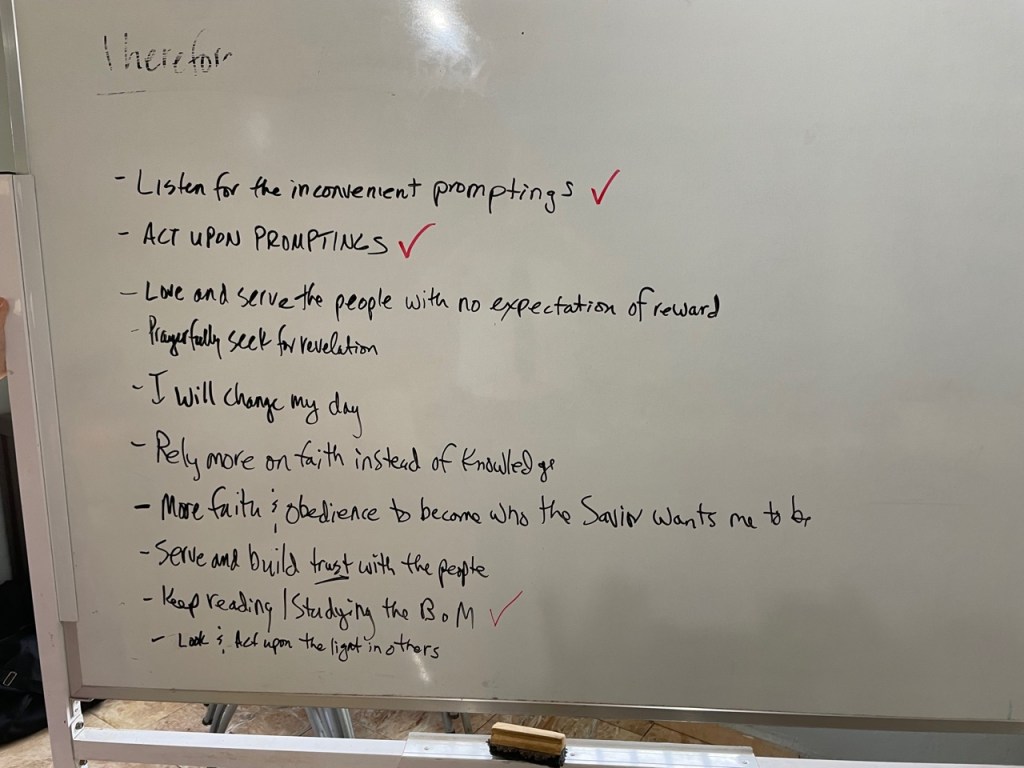 Therefor
- Listen for the inconvenient promptings ✓
- ACT UPON PROMPTINGS ✓
- Love and serve the people with no expectation of reward
- Prayerfully seek for revelation
- I will change my day
- Rely more on faith instead of Knowledge
- More faith & obedience to become who the Savior wants me to be
- Serve and build trust with the people
- Keep reading / Studying the BoM ✓
- Look & Act upon the light in others